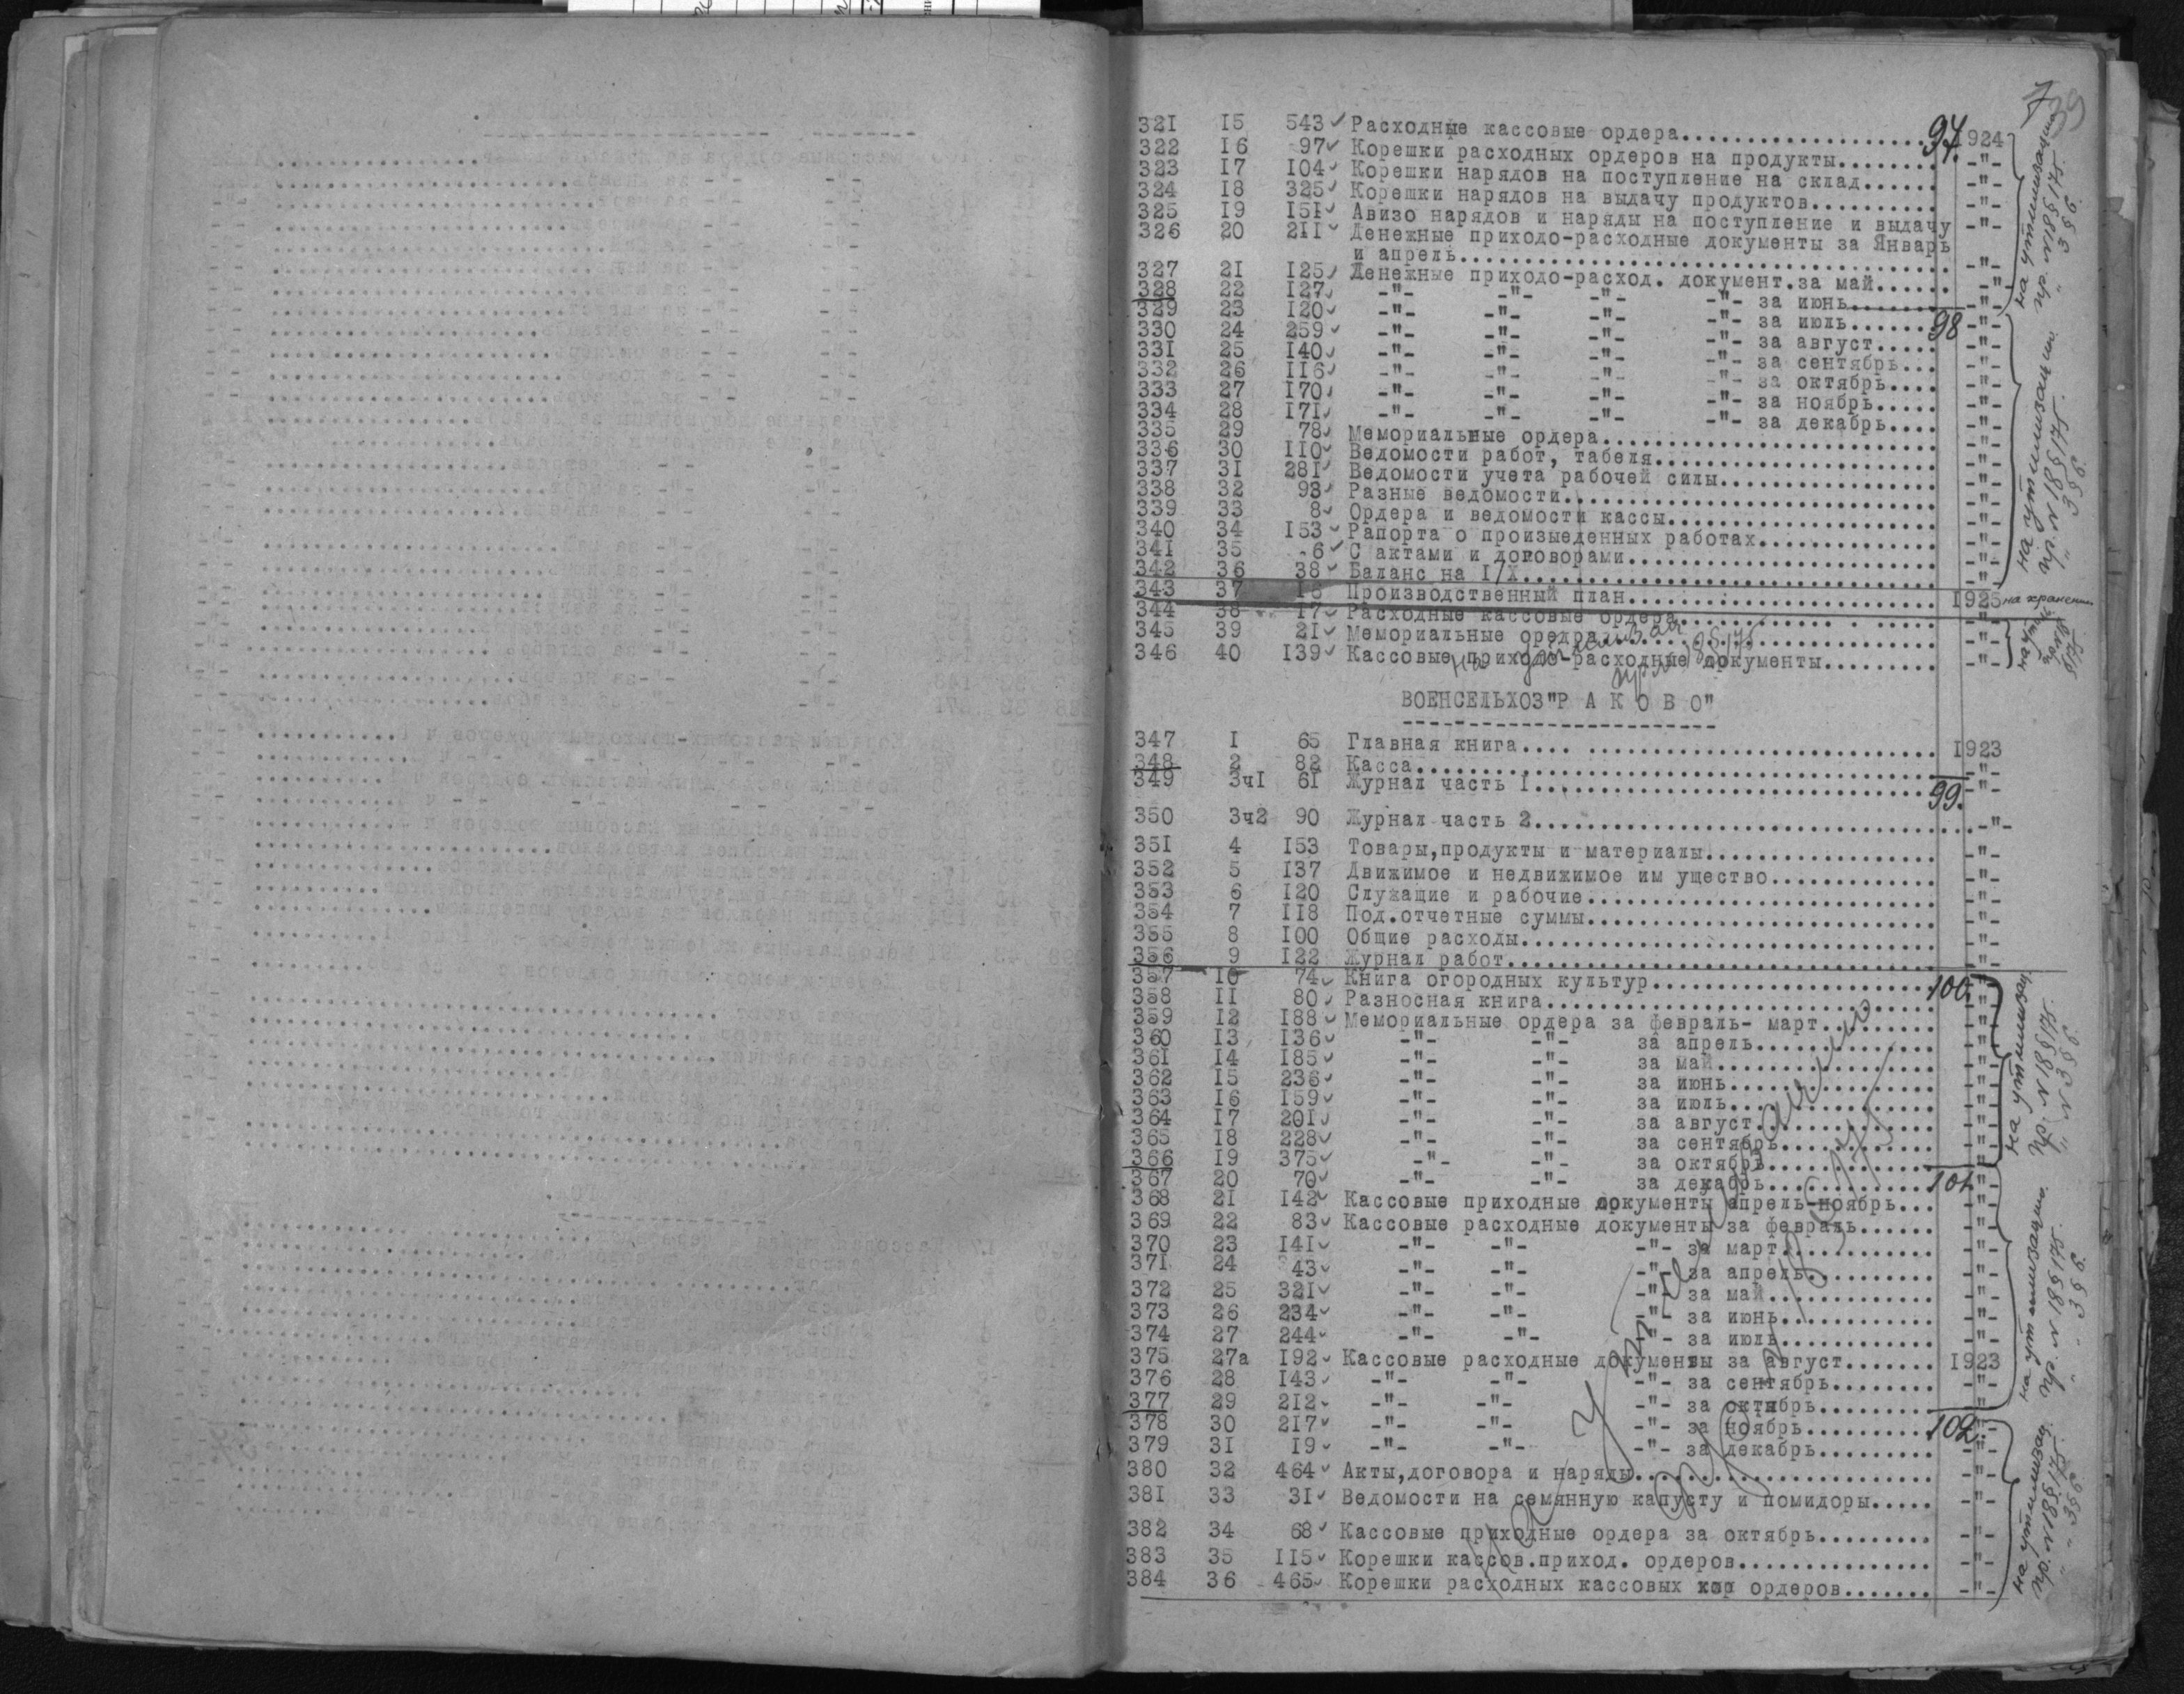 321 15 543 Расходные кассовые ордера 97. 1924
322 16 97 Корешки расходных ордеров на продукты -"-
323 17 104 Корешки нарядов на поступление на склад -"-
324 18 325 Корешки нарядов на выдачу продуктов -"-
325 19 151 Авизо нарядов и наряды на поступление и выдачу -"-
326 20 211 Денежные приходо-расходные документы за Январь
и апрель -"-
327 21 125 Денежные приходо-расход. документ.за май -"-
328 22 127 -"- -"- -"- -"- за июнь -"-
329 23 120 -"- -"- -"- -"- за июль 98 -"-
330 24 259 -"- -"- -"- -"- за август -"-
331 25 140 -"- -"- -"- -"- за сентябрь -"-
332 26 116 -"- -"- -"- -"- за октябрь -"-
333 27 170 -"- -"- -"- -"- за ноябрь -"-
334 28 171 -"- -"- -"- -"- за декабрь -"-
335 29 78 Мемориальные ордера -"-
336 30 110 Ведомости работ, табеля -"-
337 31 281 Ведомости учета рабочей силы -"-
338 32 93 Разные ведомости -"-
339 33 8 Ордера и ведомости кассы -"-
340 34 153 Рапорта о произыеденных работах -"-
341 35 6 С актами и договорами -"-
342 36 38 Баланс на I/X -"-
343 37 16 Производственный план 1925 на хранении
344 38 17 Расходные кассовые ордера -"-
345 39 21 Мемориальные оредра -"-
346 40 139 Кассовые приходо-расходные документы -"-
ВОЕНСЕЛЬХОЗ"Р А К О В О"
347 1 65 Главная книга 1923
348 2 82 Касса -"-
349 3ч1 61 Журнал часть 1 99. -"-
350 3ч2 90 Журнал часть 2 -"-
351 4 153 Товары,продукты и материалы -"-
352 5 137 Движимое и недвижимое им ущество -"-
353 6 120 Служащие и рабочие -"-
354 7 118 Под.отчетные суммы -"-
355 8 100 Общие расходы -"-
356 9 122 Журнал работ -"-
357 10 74 Книга огородных культур 100. -"-
358 11 80 Разносная книга -"-
359 12 188 Мемориальные ордера за февраль- март -"-
360 13 136 -"- -"- за апрель -"-
361 14 185 -"- -"- за май -"-
362 15 236 -"- -"- за июнь -"-
363 16 159 -"- -"- за июль -"-
364 17 201 -"- -"- за август -"-
365 18 228 -"- -"- за сентябрь -"-
366 19 375 -"- -"- за октябрь -"-
367 20 70 -"- -"- за декабрь 101. -"-
368 21 142 Кассовые приходные документы апрель-ноябрь -"-
369 22 83 Кассовые расходные документы за февраль -"-
370 23 141 -"- -"- -"- за март -"-
371 24 43 -"- -"- -"- за апрель -"-
372 25 321 -"- -"- -"- за май -"-
373 26 234 -"- -"- -"- за июнь -"-
374 27 244 -"- -"- -"- за июль -"-
375 27а 192 Кассовые расходные документы за август 1923
376 28 143 -"- -"- -"- за сентябрь -"-
377 29 212 -"- -"- -"- за октябрь -"-
378 30 217 -"- -"- -"- за ноябрь 102. -"-
379 31 19 -"- -"- -"- за декабрь -"-
380 32 464 Акты,договора и наряды -"-
381 33 31 Ведомости на семянную капусту и помидоры -"-
382 34 68 Кассовые приходные ордера за октябрь -"-
383 35 115 Корешки кассов.приход. ордеров -"-
384 36 465 Корешки расходных кассовых ордеров -"-
на утилизацию
пр. N 189 175.
" 396.
на утилизации
пр. N 189 175.
" 396.
на утилизац.
пр. N 189 175.
" N 396.
на утилизацию.
пр. N 189 175.
" - 396.
на утилизац.
пр. N 189 175.
" " 396